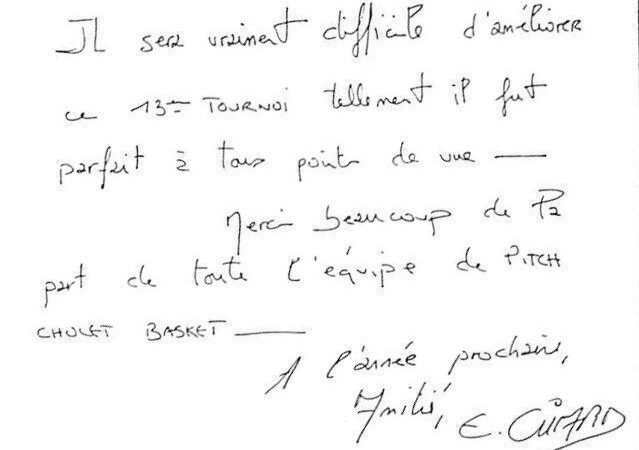 Il sera vraiment difficile d'améliorer
ce 13ème TOURNOI tellement il fut
parfait à tous points de vue —
Merci beaucoup de la
part de toute l'équipe de PITCH
CHOLET BASKET —
A l'année prochaine,
Amitié,
E.